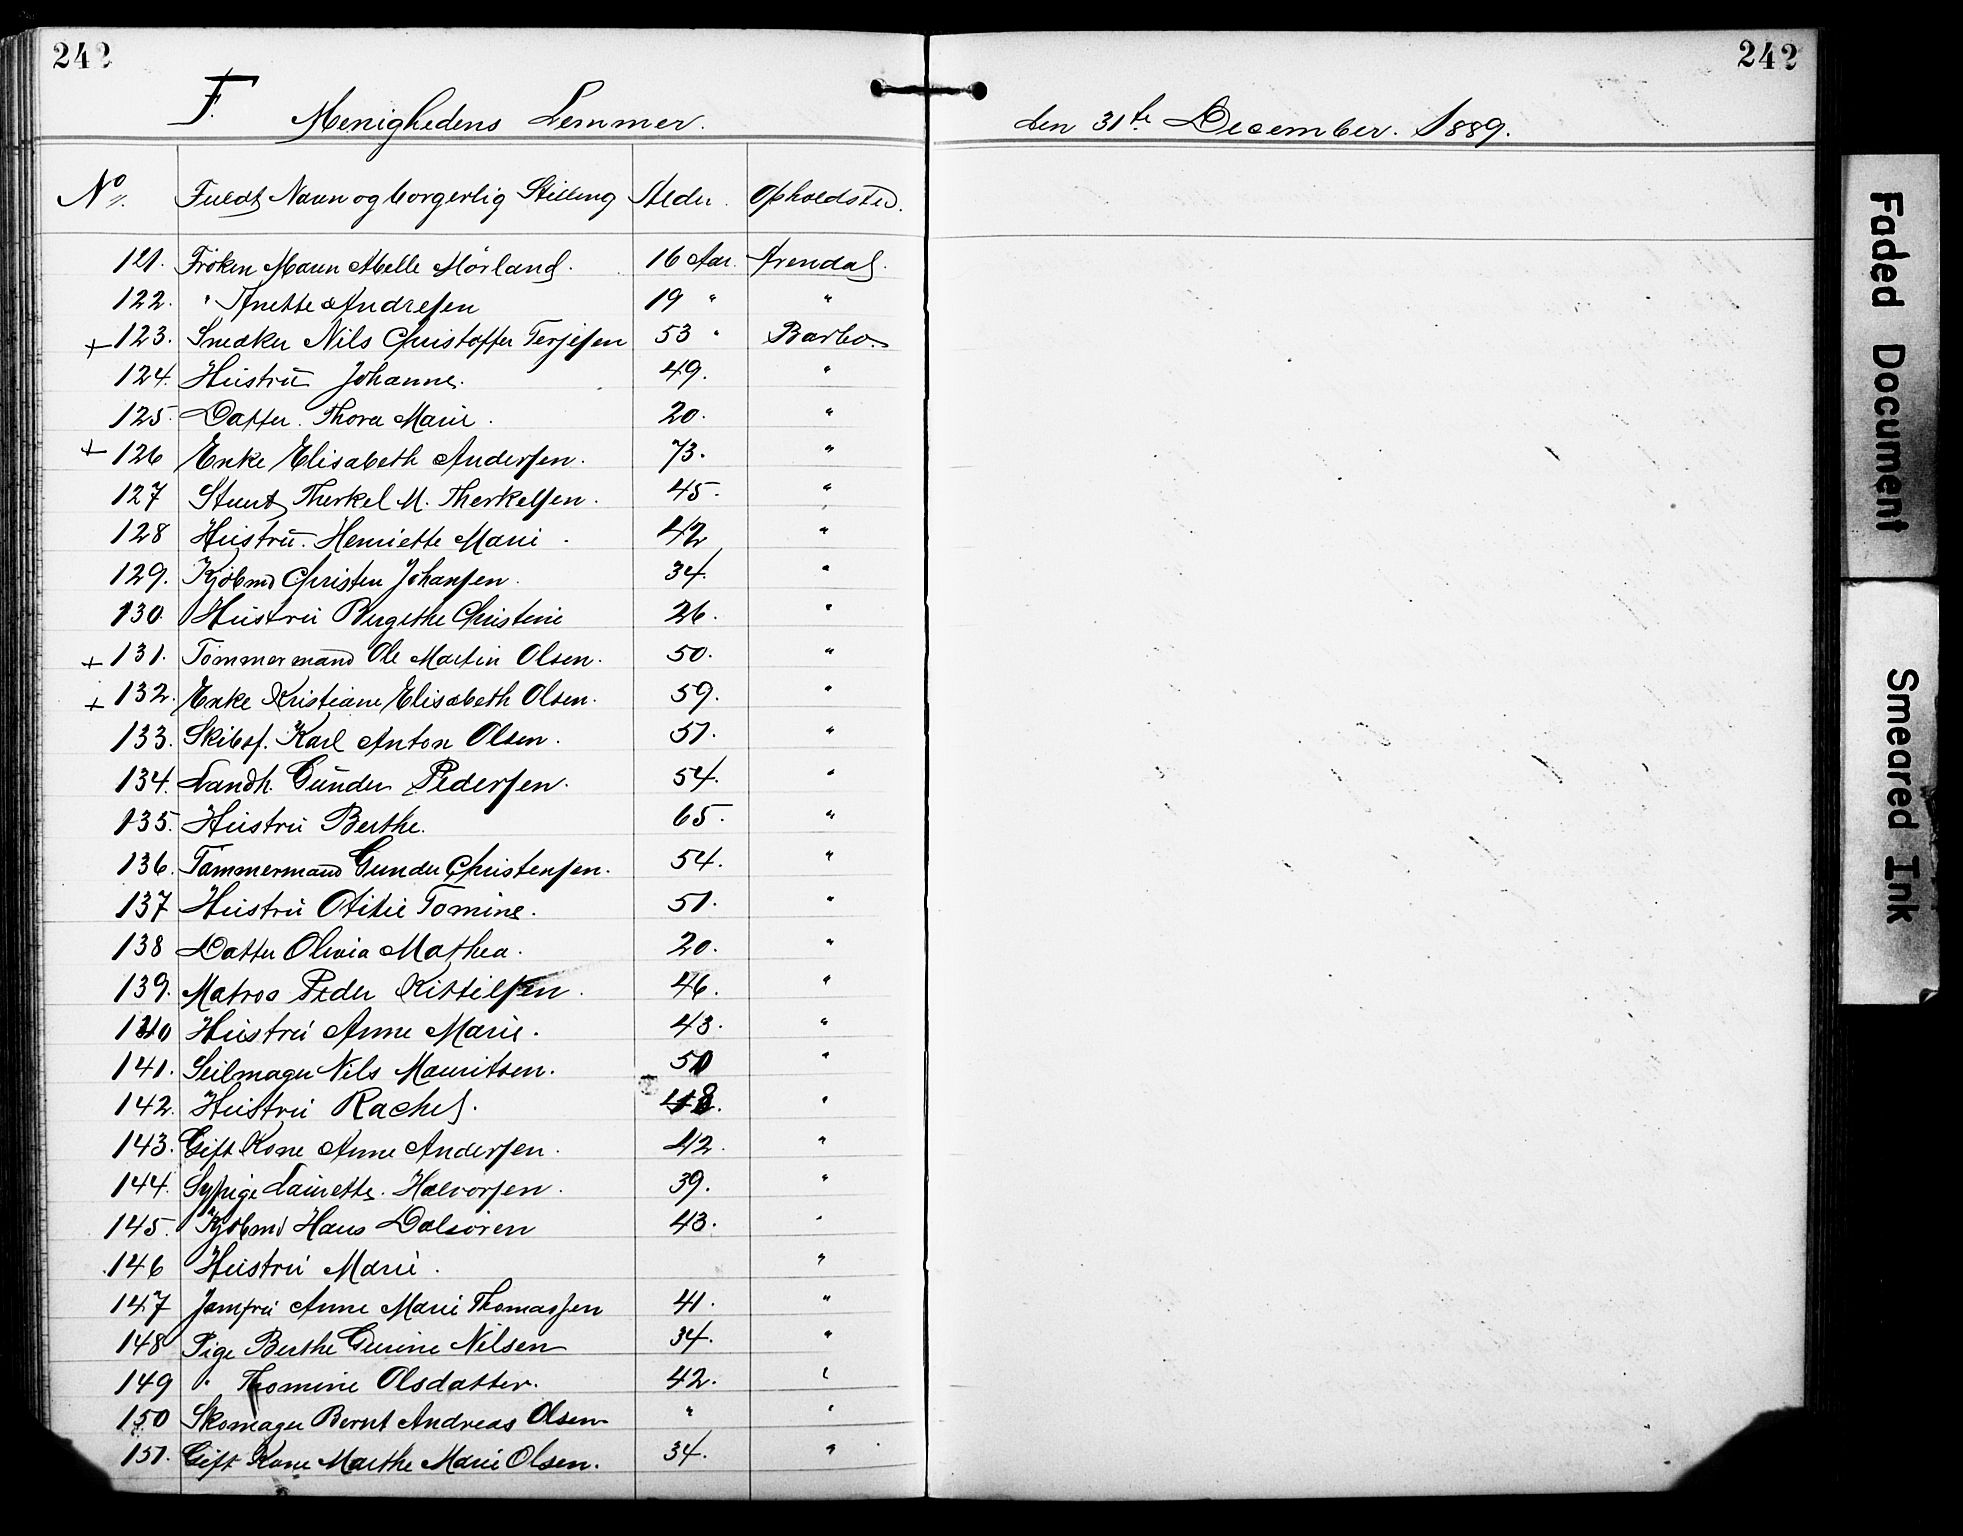 242 242
F. Menighedens Lemmer. den 31te December. 1889.
No. Fuldt Navn og borgerlig Stilling Alder. Opholdsted.
121. Fröken Maren Abelle Mörland. 16 Aar. Arendal.
122. " Anette Andresen 19 " "
+ 123. Snedker Nils Christoffer Terjesen 53 " Barbo.
124. Hustru Johanne. 49. "
125. Datter. Thora Marie. 20. "
+ 126 Enke Elisabeth Andersen. 73. "
127 Stuert Therkel M. Therkelsen. 45. "
128 Hustru. Henriette Marie. 42 "
129. Kjöbmd Christen Johansen. 34. "
130. Hustru Bergethe Christine 26. "
+ 131. Tömmermand Ole Martin Olsen. 50. "
+ 132. Enke Kristiane Elisabeth Olsen. 59. "
133. Skibsf. Karl Anton Olsen. 51. "
134. Landh. Gunder Pedersen. 54. "
135. Hustru Berthe. 65. "
136. Tømmermand Gunder Christensen. 54. "
137 Hustru Otilie Tomine. 51. "
138 Datter Olivia Mathea. 20. "
139. Matros Peder Kittilsen. 46. "
140 Hustru Anne Marie. 43. "
141. Seilmager Nils Mauritsen. 50 "
142. Hustru Rachel. 48. "
143. Gift Kone Anne Andersen. 42. "
144. Sypige Laurette. Halvorsen. 39. "
145. Kjöbmd Hans Dalsören 43. "
146 Hustru Marie. "
147 Jomfru Anne Marie Thomassen 41. "
148 Pige Berthe Gurine Nilsen 34. "
149 " Thomine Olsdatter. 42. "
150 Skomager Bernt Andreas Olsen " "
151. Gift Kone Marthe Marie Olsen. 34. "
Faded Document
Smeared Ink